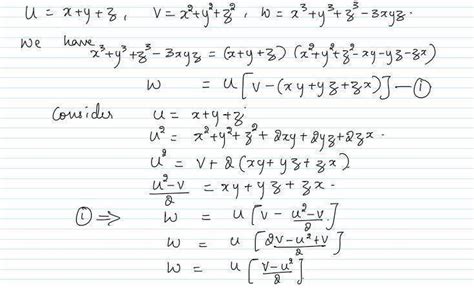 u = x+y+z, v = x²+y²+z², w = x³+y³+z³-3xyz.
we have
x³+y³+z³-3xyz = (x+y+z)(x²+y²+z²-xy-yz-zx)
w = u[v-(xy+yz+zx)] —①
Consider u = x+y+z
u² = x²+y²+z²+2xy+2yz+2zx.
u² = v+2(xy+yz+zx)
(u²-v)/2 = xy+yz+zx.
① ⇒ w = u[v - (u²-v)/2]
w = u[(2v-u²+v)/2]
w = u[(v-u²)/2]